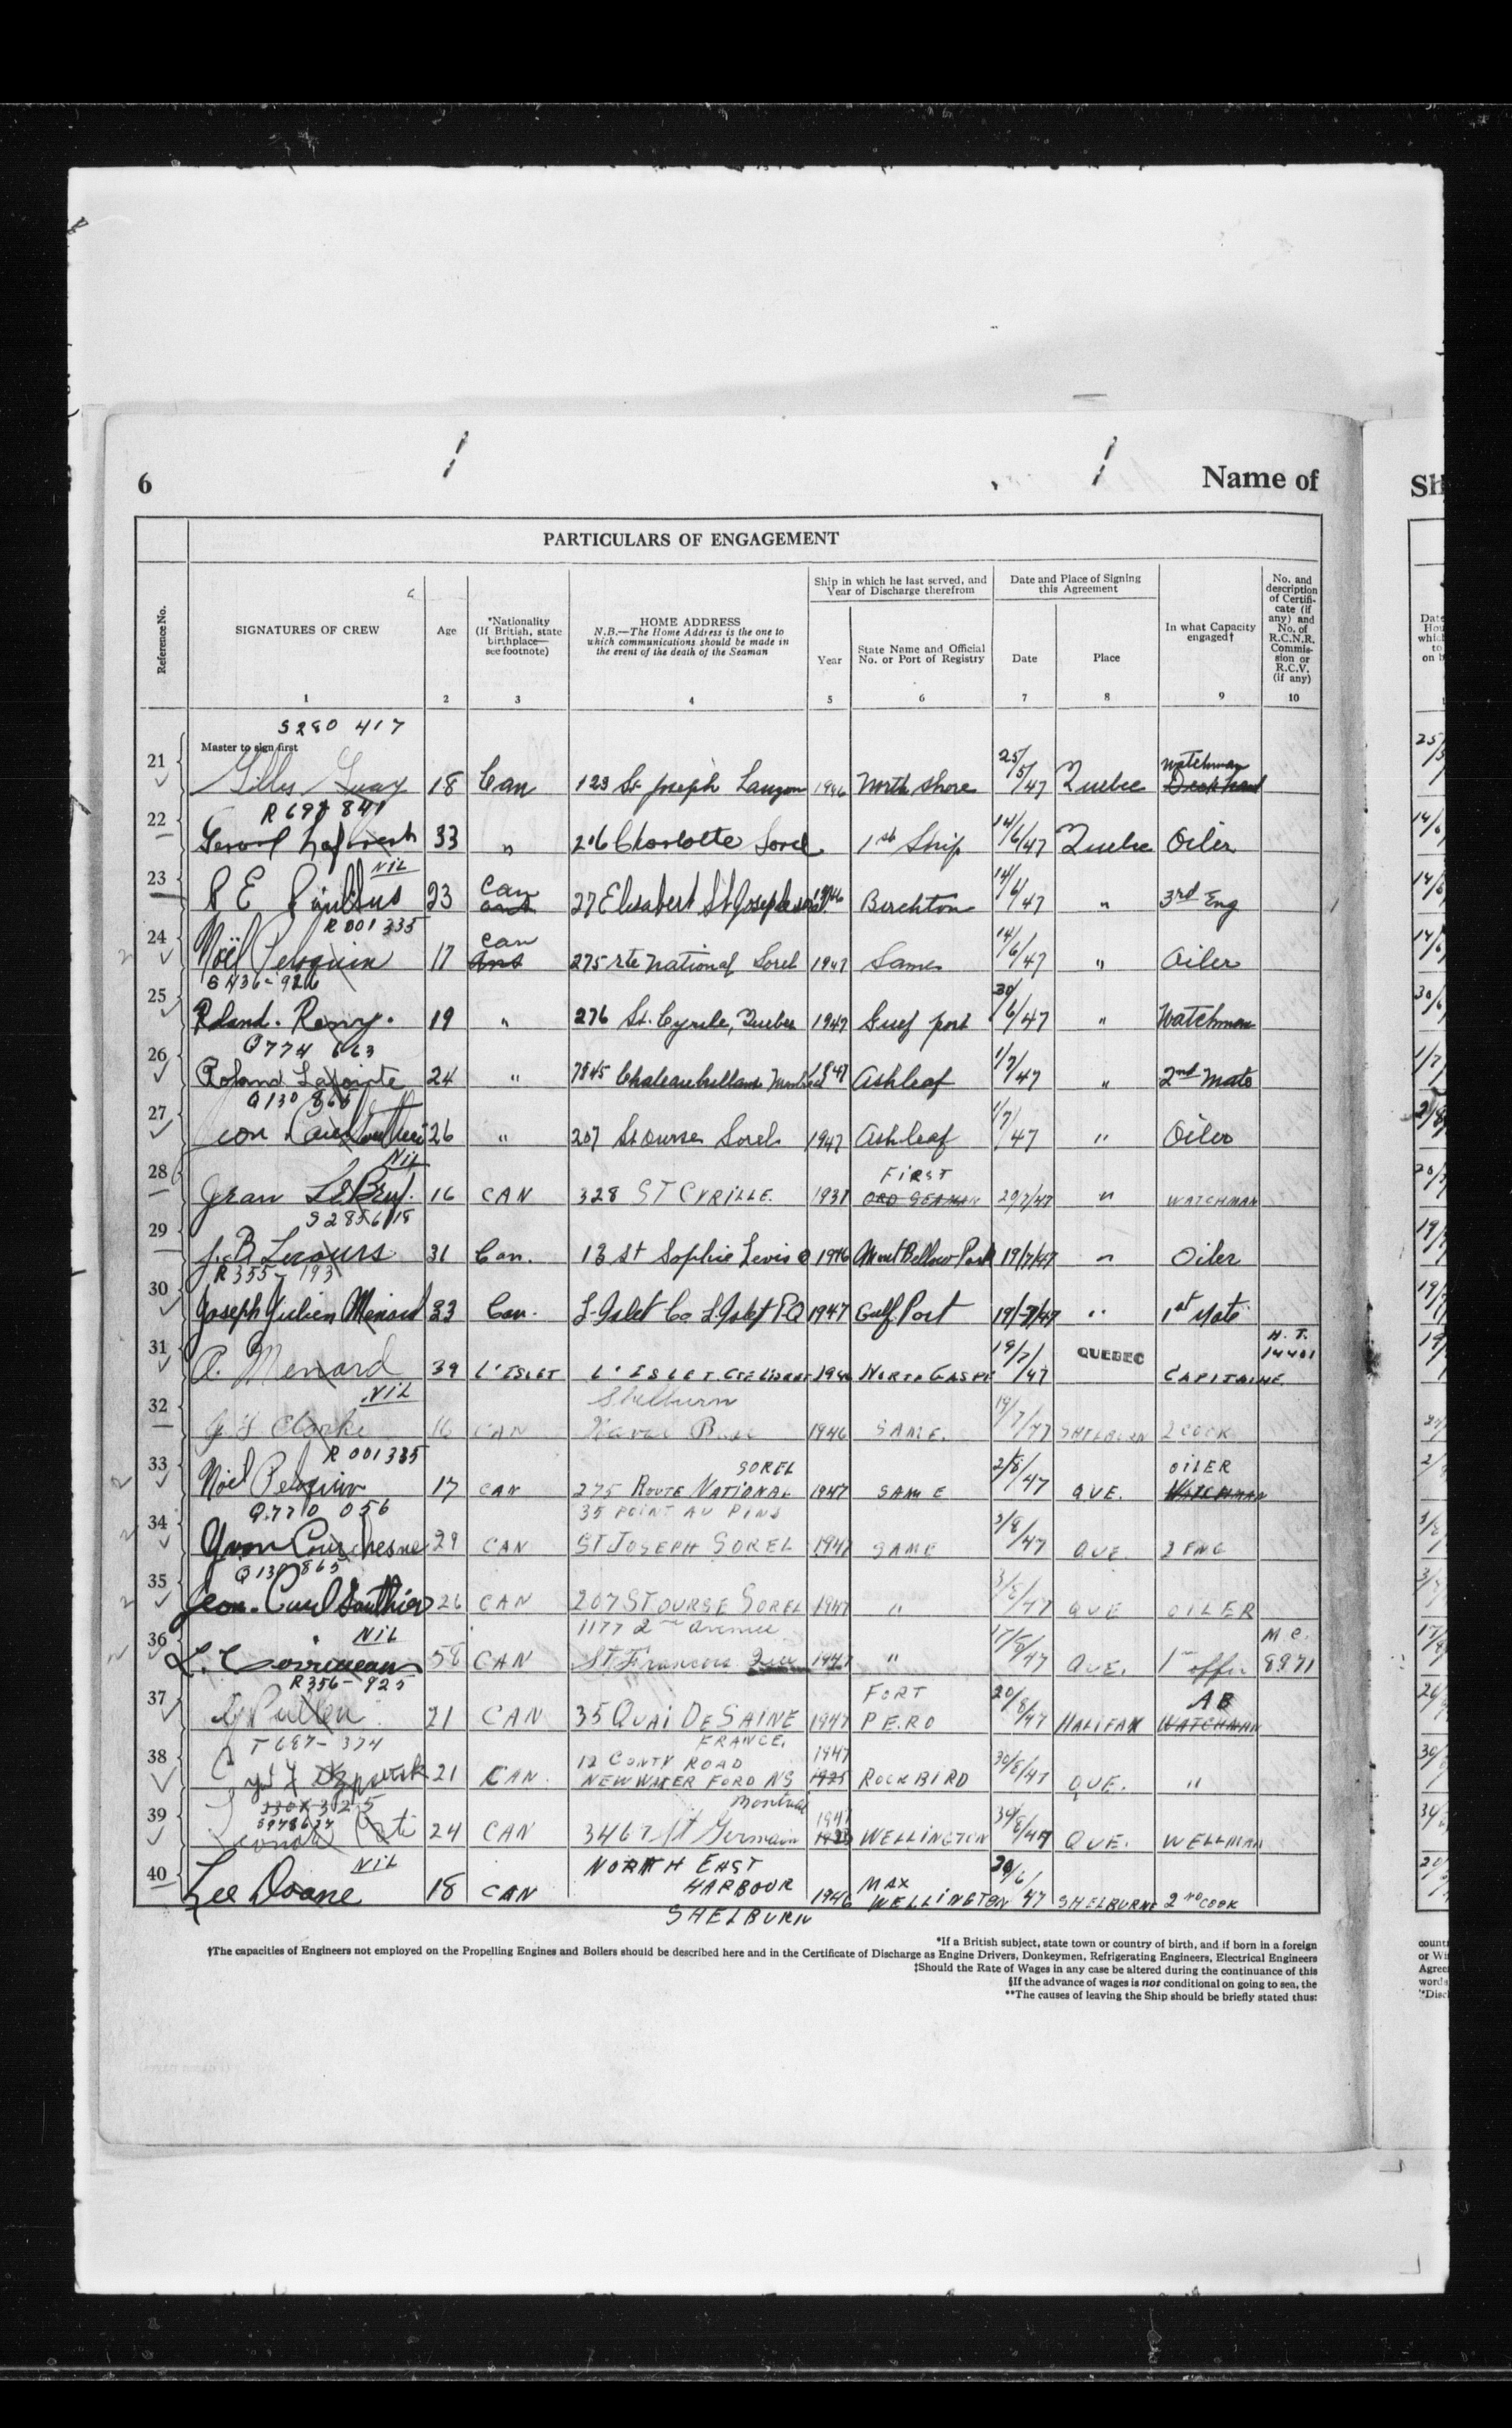 6 Name of
PARTICULARS OF ENGAGEMENT
Reference No.
SIGNATURES OF CREW
1
Age
2
*Nationality
(If British, state
birthplace—
see footnote)
3
HOME ADDRESS
N.B.—The Home Address is the one to
which communications should be made in
the event of the death of the Seaman
4
Ship in which he last served, and
Year of Discharge therefrom
Year
5
State Name and Official
No. or Port of Registry
6
Date and Place of Signing
this Agreement
Date
7
Place
8
In what Capacity
engaged†
9
No. and
description
of Certifi-
cate (if
any) and
No. of
R.C.N.R.
Commis-
sion or
R.C.V.
(if any)
10
S280 417
Master to sign first
watchman
21 Guay 18 Can 123 St Joseph Lauzon 1946 North Shore 25/5/47 Quebec Deck hand
R 697 841
22 33 " 216 Charlotte Sorel 1st Ship 14/6/47 Quebec Oiler
Nil
23 P E 23 Can 27 St Joseph 1946 Birchton 14/6/47 " 3rd Eng
R 001 335
24 Noël Peloquin 17 Can 275 rte National Sorel 1947 Same 14/6/47 " Oiler
25 Roland Remy. 19 " 276 St. Cyrile, Quebec 1947 Guef port 30/6/47 " Watchman
Q774 663
26 Roland Lapointe 24 " 7845 1947 Ashleaf 1/7/47 " 2nd Mate
Q130 865
27 26 " 207 St Ourse Sorel 1947 Ashleaf 1/7/47 " Oiler
Nil FIRST
28 16 CAN 328 ST CYRILLE. 1931 ORD SEAMAN 29/7/47 " WATCHMAN
29 J. B. 31 Can. 13 St Sophie Levis 1946 Mount Bellow Park 19/7/47 " Oiler
R355-193
30 Joseph Julien Menard 33 Can. L-Islet Co L-Islet P.Q 1947 Gulf Port 19/7/47 " 1st Mate
H. T.
14401
31 A. Menard 39 L'ISLET L'ISLET 1946 NORTH GASPE 19/7/47 QUEBEC CAPITAINE
Nil Shelburn
32 Clarke 16 CAN Naval Base 1946 SAME. 19/7/47 SHELBURN 2 COOK
R 001335 SOREL OILER
33 Noël Peloquin 17 CAN 275 ROUTE NATIONAL 1947 SAME 2/8/47 QUE. WATCHMAN
Q.770 056 35 POINT AU PINS
34 Yvon Courchesne 29 CAN ST JOSEPH SOREL 1947 SAME 3/8/47 QUE. 2 ENG
35 26 CAN 207 ST OURSE SOREL 1947 " 3/8/47 QUE OILER
Nil 1177 2me avenue M C.
36 58 CAN St Francois 1947 " 17/8/47 QUE. 1er offi 8971
R356-925 FORT AB
37 Pullen 21 CAN 35 QUAI DE SAINE 1947 PERO 20/8/47 HALIFAX WATCHMAN
FRANCE.
T687-374 12 CONTY ROAD 1947
38 21 CAN. NEW WATER FORD NS 1925 ROCKBIRD 30/8/47 QUE. "
Montreal
1947
39 24 CAN 3467 St Germain WELLINGTON 30/8/47 QUE. WELLMAN
Nil NORTH EAST
HARBOUR MAX
40 Lee Doane 18 CAN 1946 WELLINGTON 20/6/47 SHELBURNE 2nd COOK
SHELBURN
*If a British subject, state town or country of birth, and if born in a foreign
†The capacities of Engineers not employed on the Propelling Engines and Boilers should be described here and in the Certificate of Discharge as Engine Drivers, Donkeymen, Refrigerating Engineers, Electrical Engineers
‡Should the Rate of Wages in any case be altered during the continuance of this
§If the advance of wages is not conditional on going to sea, the
**The causes of leaving the Ship should be briefly stated thus: